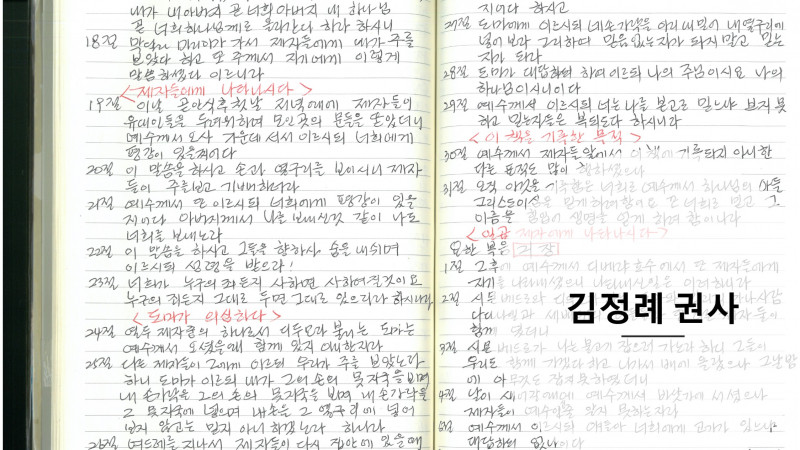 내가 내 아버지 곧 너희 아버지 내 하나님
곧 너희 하나님께로 올라간다 하라 하시니
18절 막달라 마리아가 가서 제자들에게 내가 주를
보았다 하고 또 주께서 자기에게 이렇게
말씀하셨다 이르니라
<제자들에게 나타나시다>
19절 이날 곧 안식후 첫날 저녁때에 제자들이
유대인들을 두려워하여 모인 곳의 문들을 닫았더니
예수께서 오사 가운데 서서 이르시되 너희에게
평강이 있을지어다
20절 이 말씀을 하시고 손과 옆구리를 보이시니 제자
들이 주를 보고 기뻐하더라
21절 예수께서 또 이르시되 너희에게 평강이 있을
지어다 아버지께서 나를 보내신것 같이 나도
너희를 보내노라
22절 이 말씀을 하시고 그들을 향하사 숨을 내쉬며
이르시되 성령을 받으라!
23절 너희가 누구의 죄든지 사하면 사하여질것이요
누구의 죄든지 그대로 두면 그대로 있으리라 하시니라
<도마가 의심하다>
24절 열두 제자중의 하나로서 디두모라 불리는 도마는
예수께서 오셨을때 함께 있지 아니한지라
25절 다른 제자들이 그에게 이르되 우리가 주를 보았노라
하니 도마가 이르되 내가 그의 손의 못자국을 보며
내 손가락을 그 못자국에 넣으며 내손을 그 옆구리에 넣어
보지 않고는 믿지 아니하겠노라 하니라
26절 여드레를 지나서 제자들이 다시 집안에 있을때
지어다 하시고
27절 도마에게 이르시되 네 손가락을 이리 내밀어 내 옆구리에
넣어보라 그리하여 믿음없는자가 되지 말고 믿는
자가 되라
28절 도마가 대답하여 이르되 나의 주님이시요 나의
하나님이시니이다
29절 예수께서 이르시되 너는 나를 본고로 믿느냐 보지 못
하고 믿는자들은 복되도다 하시니라
<이 책을 기록한 목적>
30절 예수께서 제자들 앞에서 이 책에 기록되지 아니한
다른 표적도 많이 행하셨으나
31절 오직 이것을 기록함은 너희로 예수께서 하나님의 아들
그리스도이심을 믿게 하려함이요 또 너희로 믿고 그
이름을 힘입어 생명을 얻게 하려 함이니라
<일곱 제자에게 나타나시다>
요한 복음
1절 그후에 예수께서 디베랴 호수에서 또 제자들에게
자기를 나타내셨으니 나타내신일은 이러하니라
2절 시몬 베드로와
함께 있더니
3절 시몬 베드로가 나는 물고기 잡으러 가노라 하니 그들이
우리도 함께 가겠다 하고 나가서 배에 올랐으나 그날밤
에 아무것도 잡지 못하였더니
4절 날이 새어갈때에 예수께서 바닷가에 서셨으나
제자들이 예수이신줄 알지 못하는지라
예수께서 이르시되 얘들아 너희에게 고기가 있느냐
대답하되 없나이다
김정례 권사